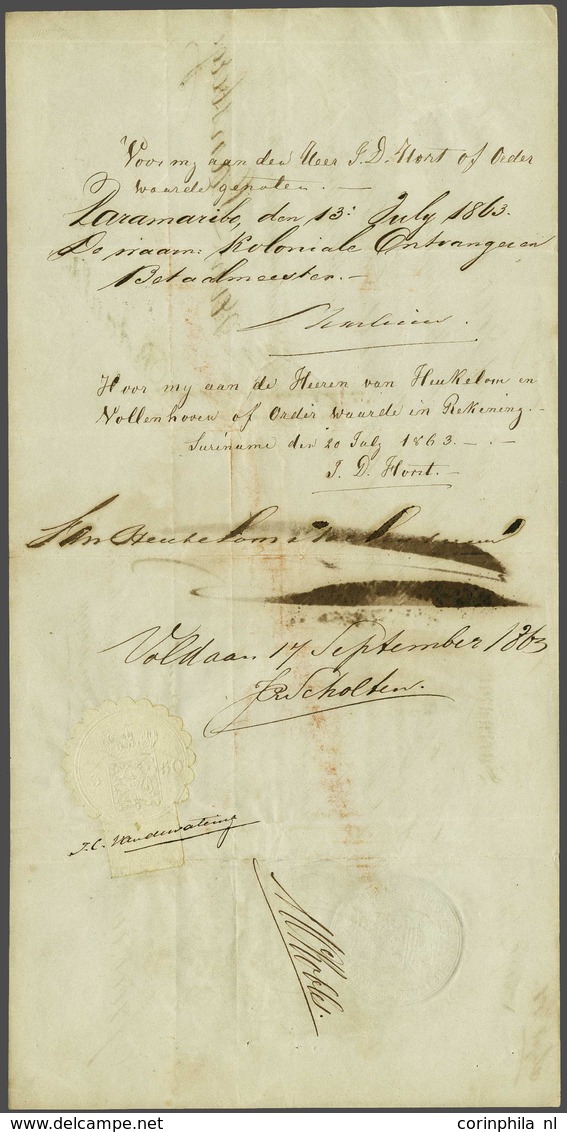 Voor my aan den Heer J. D. Horst of Order
waarde genoten. —
Paramaribo, den 13: July 1863.
De waarn: Koloniale Ontvanger en
Betaalmeester. —
Voor my aan de Heeren van Heukelom en
Vollenhoven of Order waarde in Rekening. —
Suriname den 20 July 1863. — . —
J. D. Horst. —
Van Heukelom
Voldaan 17 September 1863
Scholten.
J. C. Vandewatering
www.delcampe.net
corinphila nl